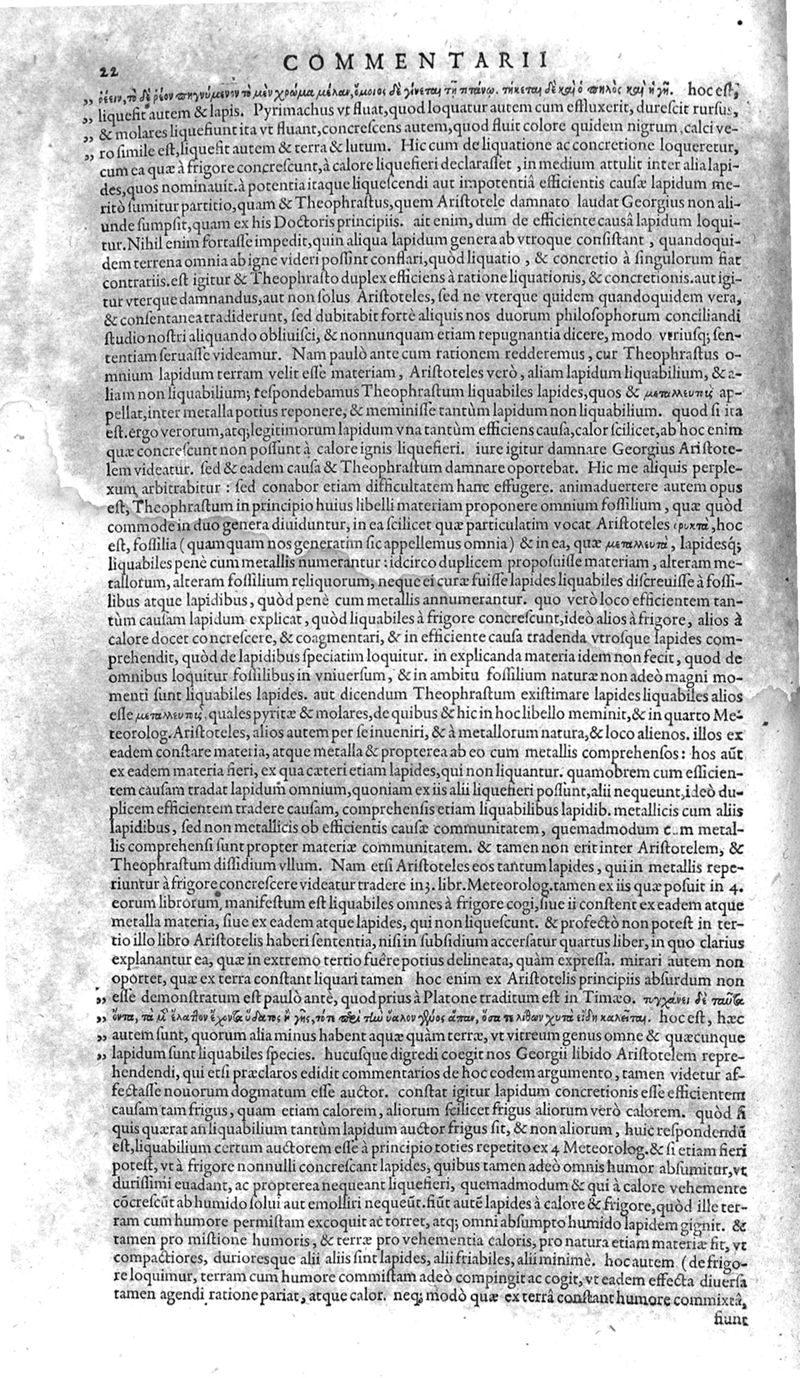 22 COMMENTARII
„ ῥέειν, τὸ δὲ ῥέον πηγνύμενον τὸ μὲν χρῶμα μέλαν, ὅμοιος δὲ γίνεται τῇ τιτάνῳ. τήκεται δὲ καὶ ὁ πηλὸς καὶ ἡ γῆ. hoc est,
„ liquefit autem & lapis. Pyrimachus vt fluat, quod loquatur autem cum effluxerit, durescit rursus,
„ & molares liquefiunt ita vt fluant, concrescens autem, quod fluit colore quidem nigrum, calci ve-
„ ro simile est, liquefit autem & terra & lutum. Hic cum de liquatione ac concretione loqueretur,
cum ea quæ à frigore concrescunt, à calore liquefieri declarasset, in medium attulit inter alia lapi-
des, quos nominauit. à potentia itaque liquescendi aut impotentiâ efficientis causæ lapidum me-
ritò sumitur partitio, quam & Theophrastus, quem Aristotele damnato laudat Georgius non ali-
unde sumpsit, quam ex his Doctoris principiis. ait enim, dum de efficiente causâ lapidum loqui-
tur. Nihil enim fortasse impedit, quin aliqua lapidum genera ab vtroque consistant, quandoqui-
dem terrena omnia ab igne videri possint conflari, quòd liquatio, & concretio à singulorum fiat
contrariis. est igitur & Theophrasto duplex efficiens à ratione liquationis, & concretionis. aut igi-
tur vterque damnandus, aut non solus Aristoteles, sed ne vterque quidem quandoquidem vera,
& consentanea tradiderunt, sed dubitabit fortè aliquis nos duorum philosophorum conciliandi
studio nostri aliquando obliuisci, & nonnunquam etiam repugnantia dicere, modo vtriusq; sen-
tentiam seruasse videamur. Nam paulò ante cum rationem redderemus, cur Theophrastus o-
mnium lapidum terram velit esse materiam, Aristoteles verò, aliam lapidum liquabilium, & a-
liam non liquabilium; respondebamus Theophrastum liquabiles lapides, quos & μεταλλευτὰς ap-
pellat, inter metalla potius reponere, & meminisse tantùm lapidum non liquabilium. quod si ita
est. ergo verorum, atq; legitimorum lapidum vna tantùm efficiens causa, calor scilicet, ab hoc enim
quæ concrescunt non possunt à calore ignis liquefieri. iure igitur damnare Georgius Aristote-
lem videatur. sed & eadem causa & Theophrastum damnare oportebat. Hic me aliquis perple-
xum arbitrabitur: sed conabor etiam difficultatem hanc effugere. animaduertere autem opus
est, Theophrastum in principio huius libelli materiam proponere omnium fossilium, quæ quòd
commode in duo genera diuiduntur, in ea scilicet quæ particulatim vocat Aristoteles ορυκτὰ, hoc
est, fossilia (quamquam nos generatim sic appellemus omnia) & in ea, quæ μεταλλευτὰ, lapidesq;
liquabiles penè cum metallis numerantur: idcirco duplicem proposuisse materiam, alteram me-
tallorum, alteram fossilium reliquorum, neque ei curæ fuisse lapides liquabiles discreuisse à fossi-
libus atque lapidibus, quòd penè cum metallis annumerantur. quo verò loco efficientem tan-
tùm causam lapidum explicat, quòd liquabiles à frigore concrescunt, ideò alios à frigore, alios à
calore docet concrescere, & coagmentari, & in efficiente causa tradenda vtrosque lapides com-
prehendit, quòd de lapidibus speciatim loquitur. in explicanda materia idem non fecit, quod de
omnibus loquitur fossilibus in vniuersum, & in ambitu fossilium naturæ non adeò magni mo-
menti sunt liquabiles lapides. aut dicendum Theophrastum existimare lapides liquabiles alios
esse μεταλλευτὰς, quales pyritæ & molares, de quibus & hic in hoc libello meminit, & in quarto Me-
teorolog. Aristoteles, alios autem per se inueniri, & à metallorum natura, & loco alienos. illos ex
eadem constare materia, atque metalla & propterea ab eo cum metallis comprehensos: hos aūt
ex eadem materia fieri, ex qua cæteri etiam lapides, qui non liquantur. quamobrem cum efficien-
tem causam tradat lapidum omnium, quoniam ex iis alii liquefieri possunt, alii nequeunt, ideò du-
plicem efficientem tradere causam, comprehensis etiam liquabilibus lapidib. metallicis cum aliis
lapidibus, sed non metallicis ob efficientis causæ communitatem, quemadmodum cum metal-
lis comprehensi sunt propter materiæ communitatem. & tamen non erit inter Aristotelem, &
Theophrastum dissidium vllum. Nam etsi Aristoteles eos tantum lapides, qui in metallis repe-
riuntur à frigore concrescere videatur tradere in 3. libr. Meteorolog. tamen ex iis quæ posuit in 4.
eorum librorum, manifestum est liquabiles omnes à frigore cogi, siue ii constent ex eadem atque
metalla materia, siue ex eadem atque lapides, qui non liquescunt. & profectò non potest in ter-
tio illo libro Aristotelis haberi sententia, nisi in subsidium accersatur quartus liber, in quo clarius
explanantur ea, quæ in extremo tertio fuêre potius delineata, quàm expressa. mirari autem non
oportet, quæ ex terra constant liquari tamen hoc enim ex Aristotelis principiis absurdum non
„ esse demonstratum est paulò antè, quod prius à Platone traditum est in Timæo. τυγχάνει δὲ ταῦτα
„ ὄντα, τὰ μ̀ ἔλαττον ἔχοντα ὕδατος ἢ γῆς, τό τε περὶ τὴν ὕαλον γένος ἅπαν, ὅσα τε λίθων χυτὰ εἴδη καλεῖται. hoc est, hæc
„ autem sunt, quorum alia minus habent aquæ quàm terræ, vt vitreum genus omne & quæcunque
„ lapidum sunt liquabiles species. hucusque digredi coegit nos Georgii libido Aristotelem repre-
hendendi, qui etsi præclaros edidit commentarios de hoc eodem argumento, tamen videtur af-
fectasse nouorum dogmatum esse auctor. constat igitur lapidum concretionis esse efficientem
causam tam frigus, quam etiam calorem, aliorum scilicet frigus aliorum verò calorem. quòd si
quis quærat an liquabilium tantùm lapidum auctor frigus sit, & non aliorum, huic respondendū
est, liquabilium certum auctorem esse à principio toties repetito ex 4 Meteorolog. & si etiam fieri
potest, vt à frigore nonnulli concrescant lapides, quibus tamen adeò omnis humor absumitur, vt
durissimi euadant, ac propterea nequeant liquefieri, quemadmodum & qui à calore vehemente
cōcrescūt ab humido solui aut emolliri nequeūt. fiūt autē lapides à calore & frigore, quòd ille ter-
ram cum humore permistam excoquit ac torret, atq; omni absumpto humido lapidem gignit. &
tamen pro mistione humoris, & terræ pro vehementia caloris, pro natura etiam materiæ fit, vt
compactiores, durioresque alii aliis sint lapides, alii friabiles, alii minimè. hoc autem (de frigo-
re loquimur, terram cum humore commistam adeò compingit ac cogit, vt eadem effecta diuersa
tamen agendi ratione pariat, atque calor. neq; modò quæ ex terrâ constant humore commixtâ,
fiunt